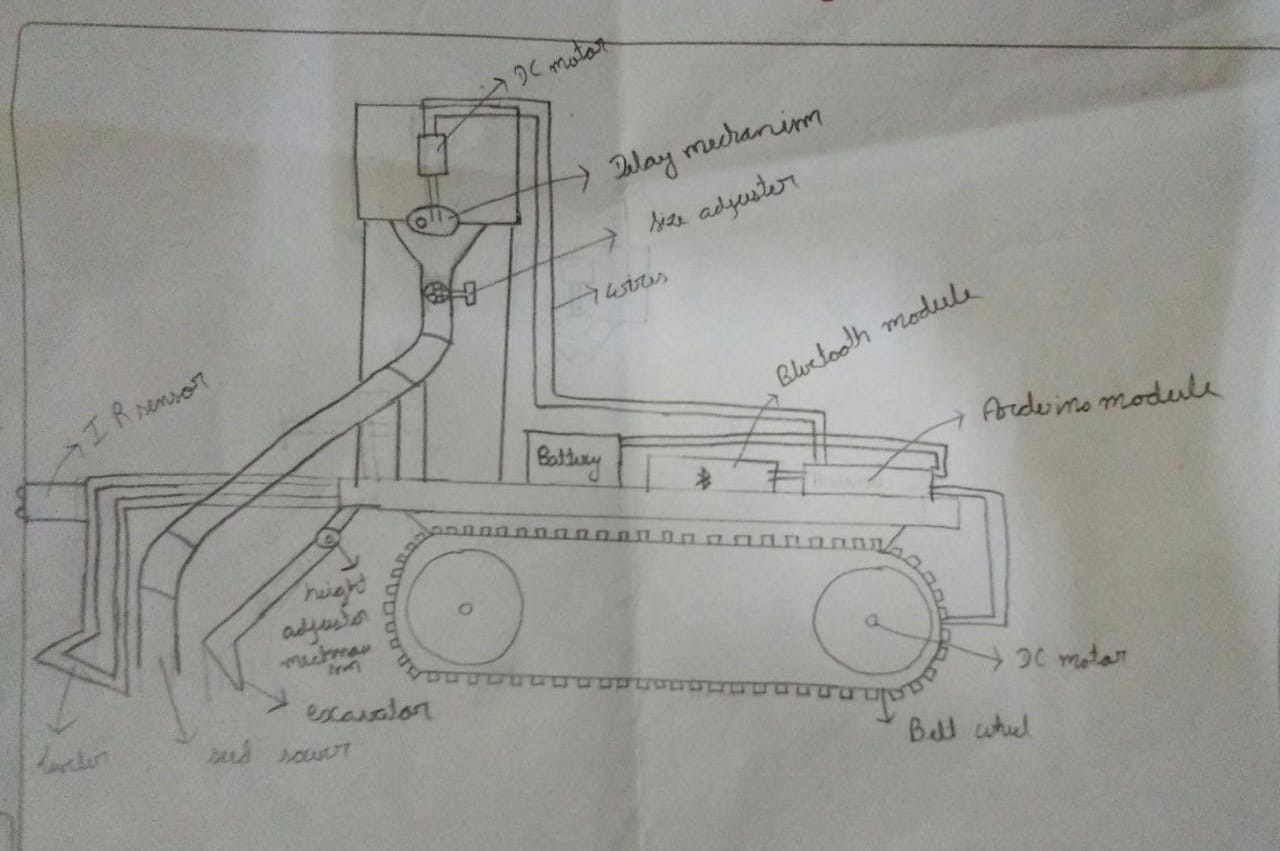 DC motor
Delay mechanism
size adjuster
wires
Bluetooth module
Arduino module
I R sensor
Battery
height
adjustor
DC motor
excavator
Belt wheel
seed sower